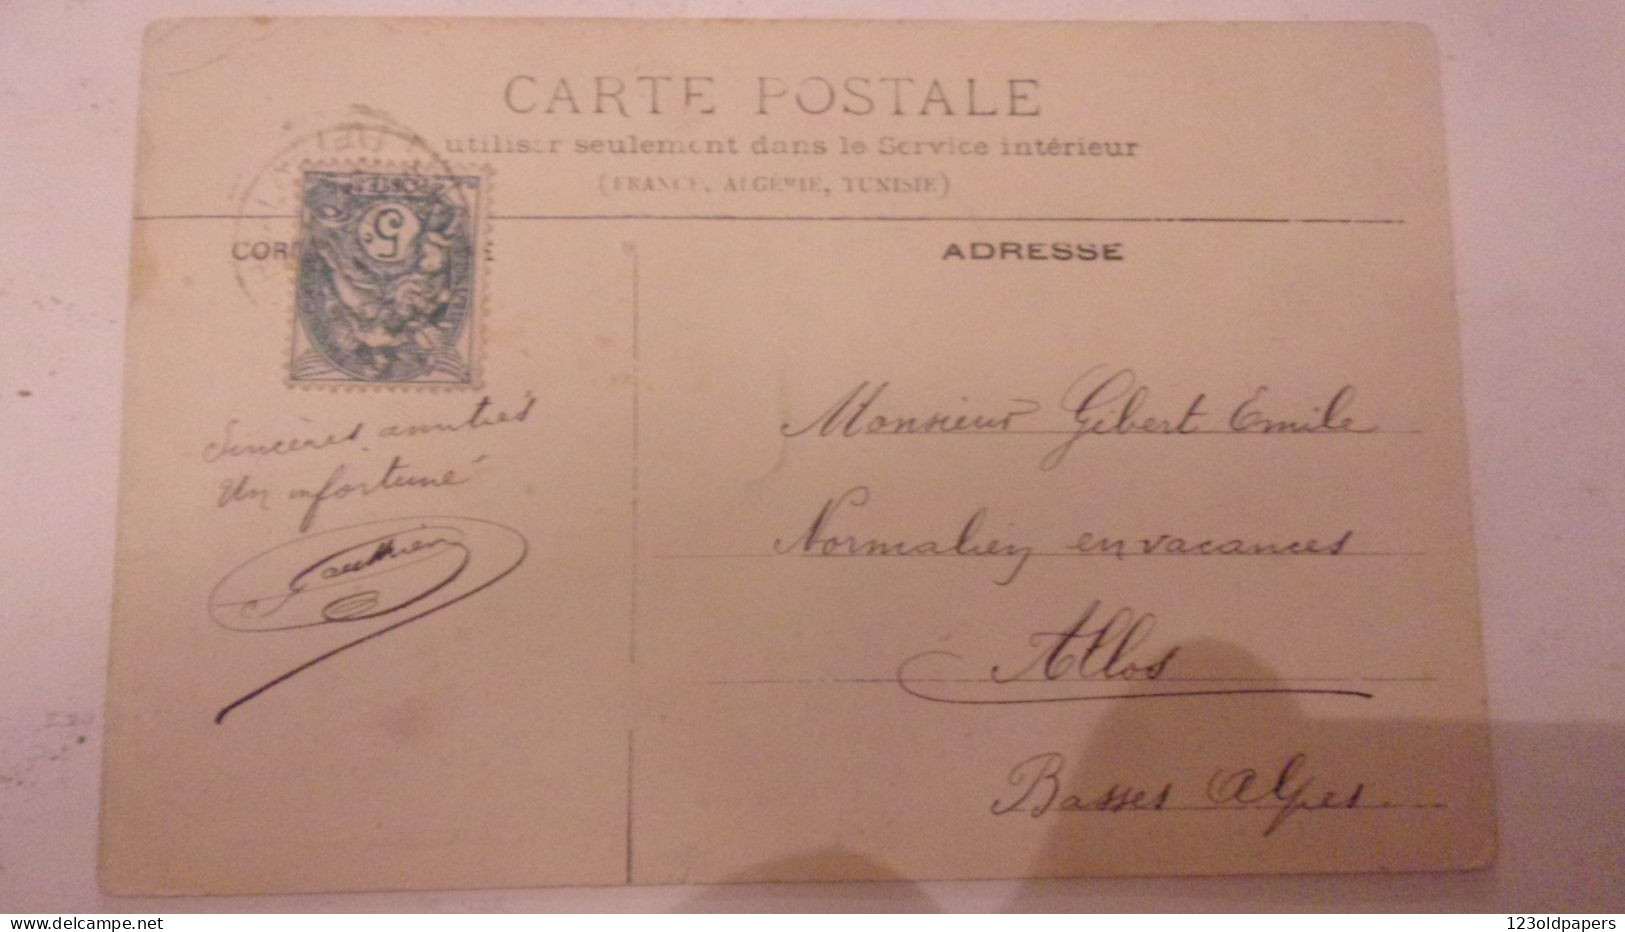 CARTE POSTALE
utiliser seulement dans le Service intérieur
(FRANCE, ALGÉRIE, TUNISIE)
COR
ADRESSE
5
POSTES
Sincères amitiés
Un infortuné
Gauthier
Monsieur Gibert Emile
Normalien en vacances
Allos
Basses Alpes
delcampe.net
123oldpapers